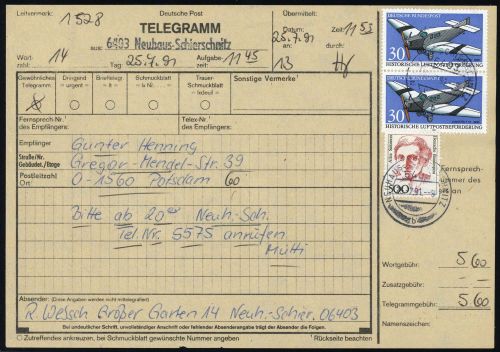 Leitvermerk: 1528
Deutsche Post
Übermittelt:
TELEGRAMM
Datum: 25.7.91 Zeit: 11 53
6403 Neuhaus-Schierschnitz
Wortzahl: 14 Tag: 25.7.91 Aufgabezeit: 11 45
an: 13 durch:
Gewöhnliches Telegramm
Dringend = urgent =
Brieftelegr. = lt =
Schmuckblatt = lx Nr.
Trauer-Schmuckblatt = lxdeuil =
Sonstige Vermerke¹
Fernsprech-Nr.¹ des Empfängers:
Telex-Nr.¹ des Empfängers:
Empfänger Günter Henning
Straße/Nr. Gebäudeteil/Etage Gregor-Mendel-Str. 39
Postleitzahl Ort: O-1560 Potsdam 60
Bitte ab 20 00 Neuh.-Sch.
Tel. Nr. 5575 anrufen
Mutti
Absender: (Diese Angaben werden nicht mittelegrafiert)
R. Wessch Größer Garten 14 Neuh.-Schier. 06403
Bei undeutlicher Schrift, unvollständiger Anschrift oder fehlender Absenderangabe trägt der Absender die Folgen.
Zutreffendes ankreuzen, bei Schmuckblatt gewünschte Nummer angeben ¹ Rückseite beachten
DEUTSCHE BUNDESPOST
30
HISTORISCHE LUFTPOSTBEFÖRDERUNG
DEUTSCHE BUNDESPOST
30
HISTORISCHE LUFTPOSTBEFÖRDERUNG
500
Deutsche Bundespost
NEUHAUS
7.91.
b
Fernsprech-
nummer des
Wortgebühr: 5,60
Telegrammgebühr: 5,60
Namenszeichen: